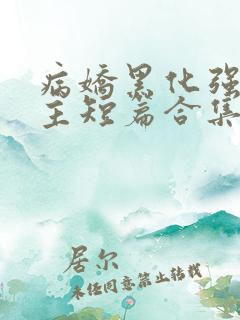 病娇黑化强
主短篇合集
居尔
未经同意禁止转载